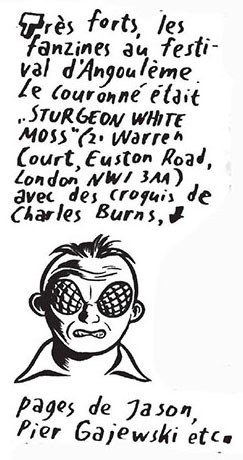 Très forts, les
fanzines au festi-
val d'Angoulème.
Le couronné était
„STURGEON WHITE
MOSS" (2. Warren
Court, Euston Road,
London NW1 3AA)
avec des croquis de
Charles Burns,
pages de Jason,
Pier Gajewski etc.